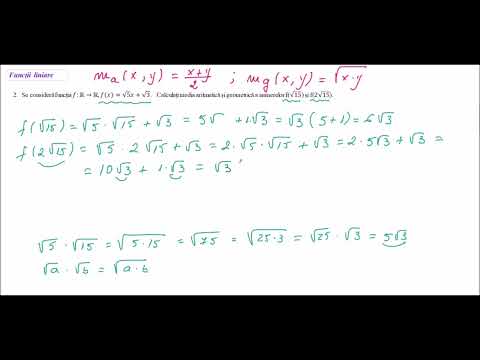 Funcții liniare
m_a(x,y) = \frac{x+y}{2} ; m_g(x,y) = \sqrt{x·y}
2. Se consideră funcția f : ℝ → ℝ, f(x) = √5x + √3. Calculați media aritmetică și geometrică a numerelor f(√15) și f(2√15).
f(√15) = √5 · √15 + √3 = 5√ + 1·√3 = √3 (5+1) = 6√3
f(2√15) = √5 · 2√15 + √3 = 2·√5·√15 + √3 = 2·5√3 + √3 =
= 10√3 + 1·√3 = √3
√5 · √15 = √5·15 = √75 = √25·3 = √25 · √3 = 5√3
√a · √b = √a·b